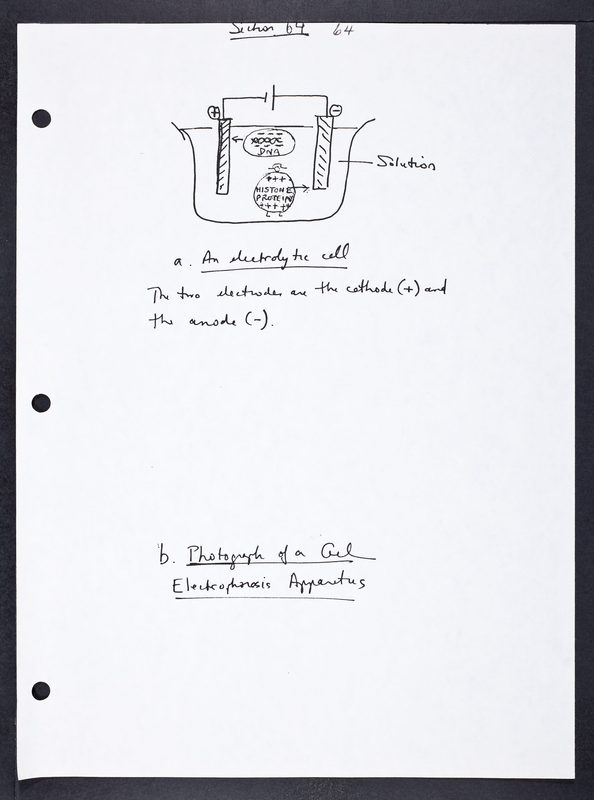 Section 64 64
+
-
DNA
Solution
+++
HISTONE
PROTEIN
++++
a. An electrolytic cell
The two electrodes are the cathode (+) and
the anode (-).
b. Photograph of a Gel
Electrophorosis Apparatus